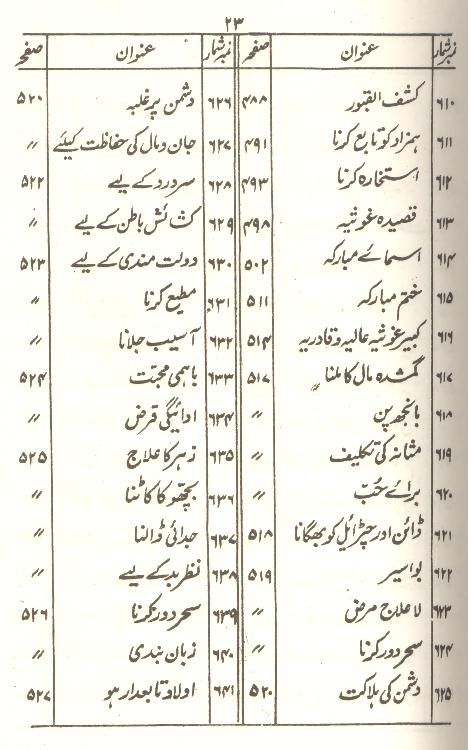 ۲۳
نمبر شمار عنوان صفحہ
۶۱۰ کشف القبور ۴۸۸
۶۱۱ ہمزاد کو تابع کرنا ۴۹۱
۶۱۲ استخارہ کرنا ۴۹۳
۶۱۳ قصیدہ غوثیہ ۴۹۸
۶۱۴ اسمائے مبارکہ ۵۰۲
۶۱۵ ختم مبارکہ ۵۱۱
۶۱۶ کبیر غوثیہ عالیہ و قادریہ ۵۱۴
۶۱۷ گمشدہ مال کا ملنا ۵۱۷
۶۱۸ بانجھ پن 〃
۶۱۹ مثانہ کی تکلیف 〃
۶۲۰ برائے حُبّ 〃
۶۲۱ ڈائن اور چڑیل کو بھگانا ۵۱۸
۶۲۲ بواسیر ۵۱۹
۶۲۳ لاعلاج مرض 〃
۶۲۴ سحر دور کرنا 〃
۶۲۵ دشمن کی ہلاکت ۵۲۰
نمبر شمار عنوان صفحہ
۶۲۶ دشمن پر غلبہ ۵۲۰
۶۲۷ جان و مال کی حفاظت کیلئے 〃
۶۲۸ سر درد کے لیے ۵۲۲
۶۲۹ کشائش باطن کے لیے 〃
۶۳۰ دولت مندی کے لیے ۵۲۳
۶۳۱ مطیع کرنا 〃
۶۳۲ آسیب جلانا 〃
۶۳۳ باہمی محبت ۵۲۴
۶۳۴ ادائیگی قرض 〃
۶۳۵ زہر کا علاج ۵۲۵
۶۳۶ بچھو کا کاٹنا 〃
۶۳۷ جدائی ڈالنا 〃
۶۳۸ نظر بد کے لیے 〃
۶۳۹ سحر دور کرنا ۵۲۶
۶۴۰ زبان بندی 〃
۶۴۱ اولاد تابعدار ہو ۵۲۷